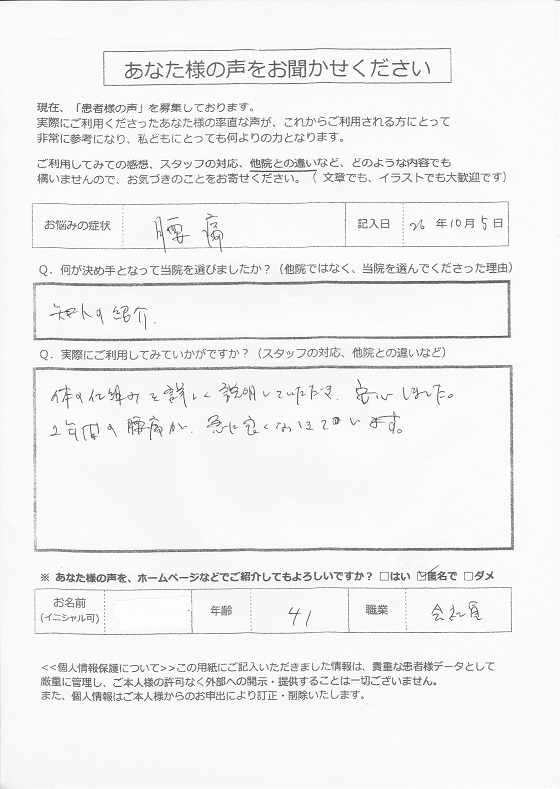 あなた様の声をお聞かせください
現在、「患者様の声」を募集しております。
実際にご利用くださったあなた様の率直な声が、これからご利用される方にとって
非常に参考になり、私どもにとっても何よりの力となります。
ご利用してみての感想、スタッフの対応、他院との違いなど、どのような内容でも
構いませんので、お気づきのことをお寄せください。（ 文章でも、イラストでも大歓迎です）
お悩みの症状 腰痛 記入日 26 年 10 月 5 日
Q. 何が決め手となって当院を選びましたか？（他院ではなく、当院を選んでくださった理由）
知人の紹介.
Q. 実際にご利用してみていかがですか？（スタッフの対応、他院との違いなど）
体の仕組みを詳しく説明していただき、安心しました。
2年間の腰痛が、急に良くなってています。
※ あなた様の声を、ホームページなどでご紹介してもよろしいですか？ □はい ☑匿名で □ダメ
お名前
(イニシャル可) 年齢 41 職業 会社員
<<個人情報保護について>>この用紙にご記入いただきました情報は、貴重な患者様データとして
厳重に管理し、ご本人様の許可なく外部への開示・提供することは一切ございません。
また、個人情報はご本人様からのお申出により訂正・削除いたします。